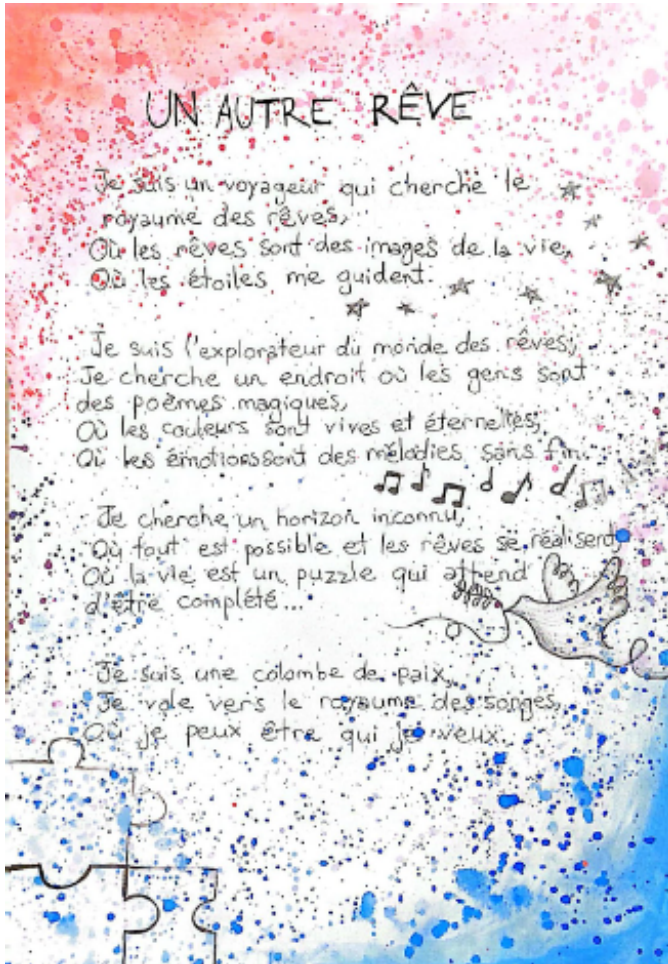 UN AUTRE RÊVE
Je suis un voyageur qui cherche le
royaume des rêves,
Où les rêves sont des images de la vie,
Où les étoiles me guident.
Je suis l'explorateur du monde des rêves,
Je cherche un endroit où les gens sont
des poèmes magiques,
Où les couleurs sont vives et éternelles,
Où les émotions sont des mélodies sans fin.
Je cherche un horizon inconnu,
Où tout est possible et les rêves se réalisent,
Où la vie est un puzzle qui attend
d'être complété...
Je suis une colombe de paix,
Je vole vers le royaume des songes,
Où je peux être qui je veux.